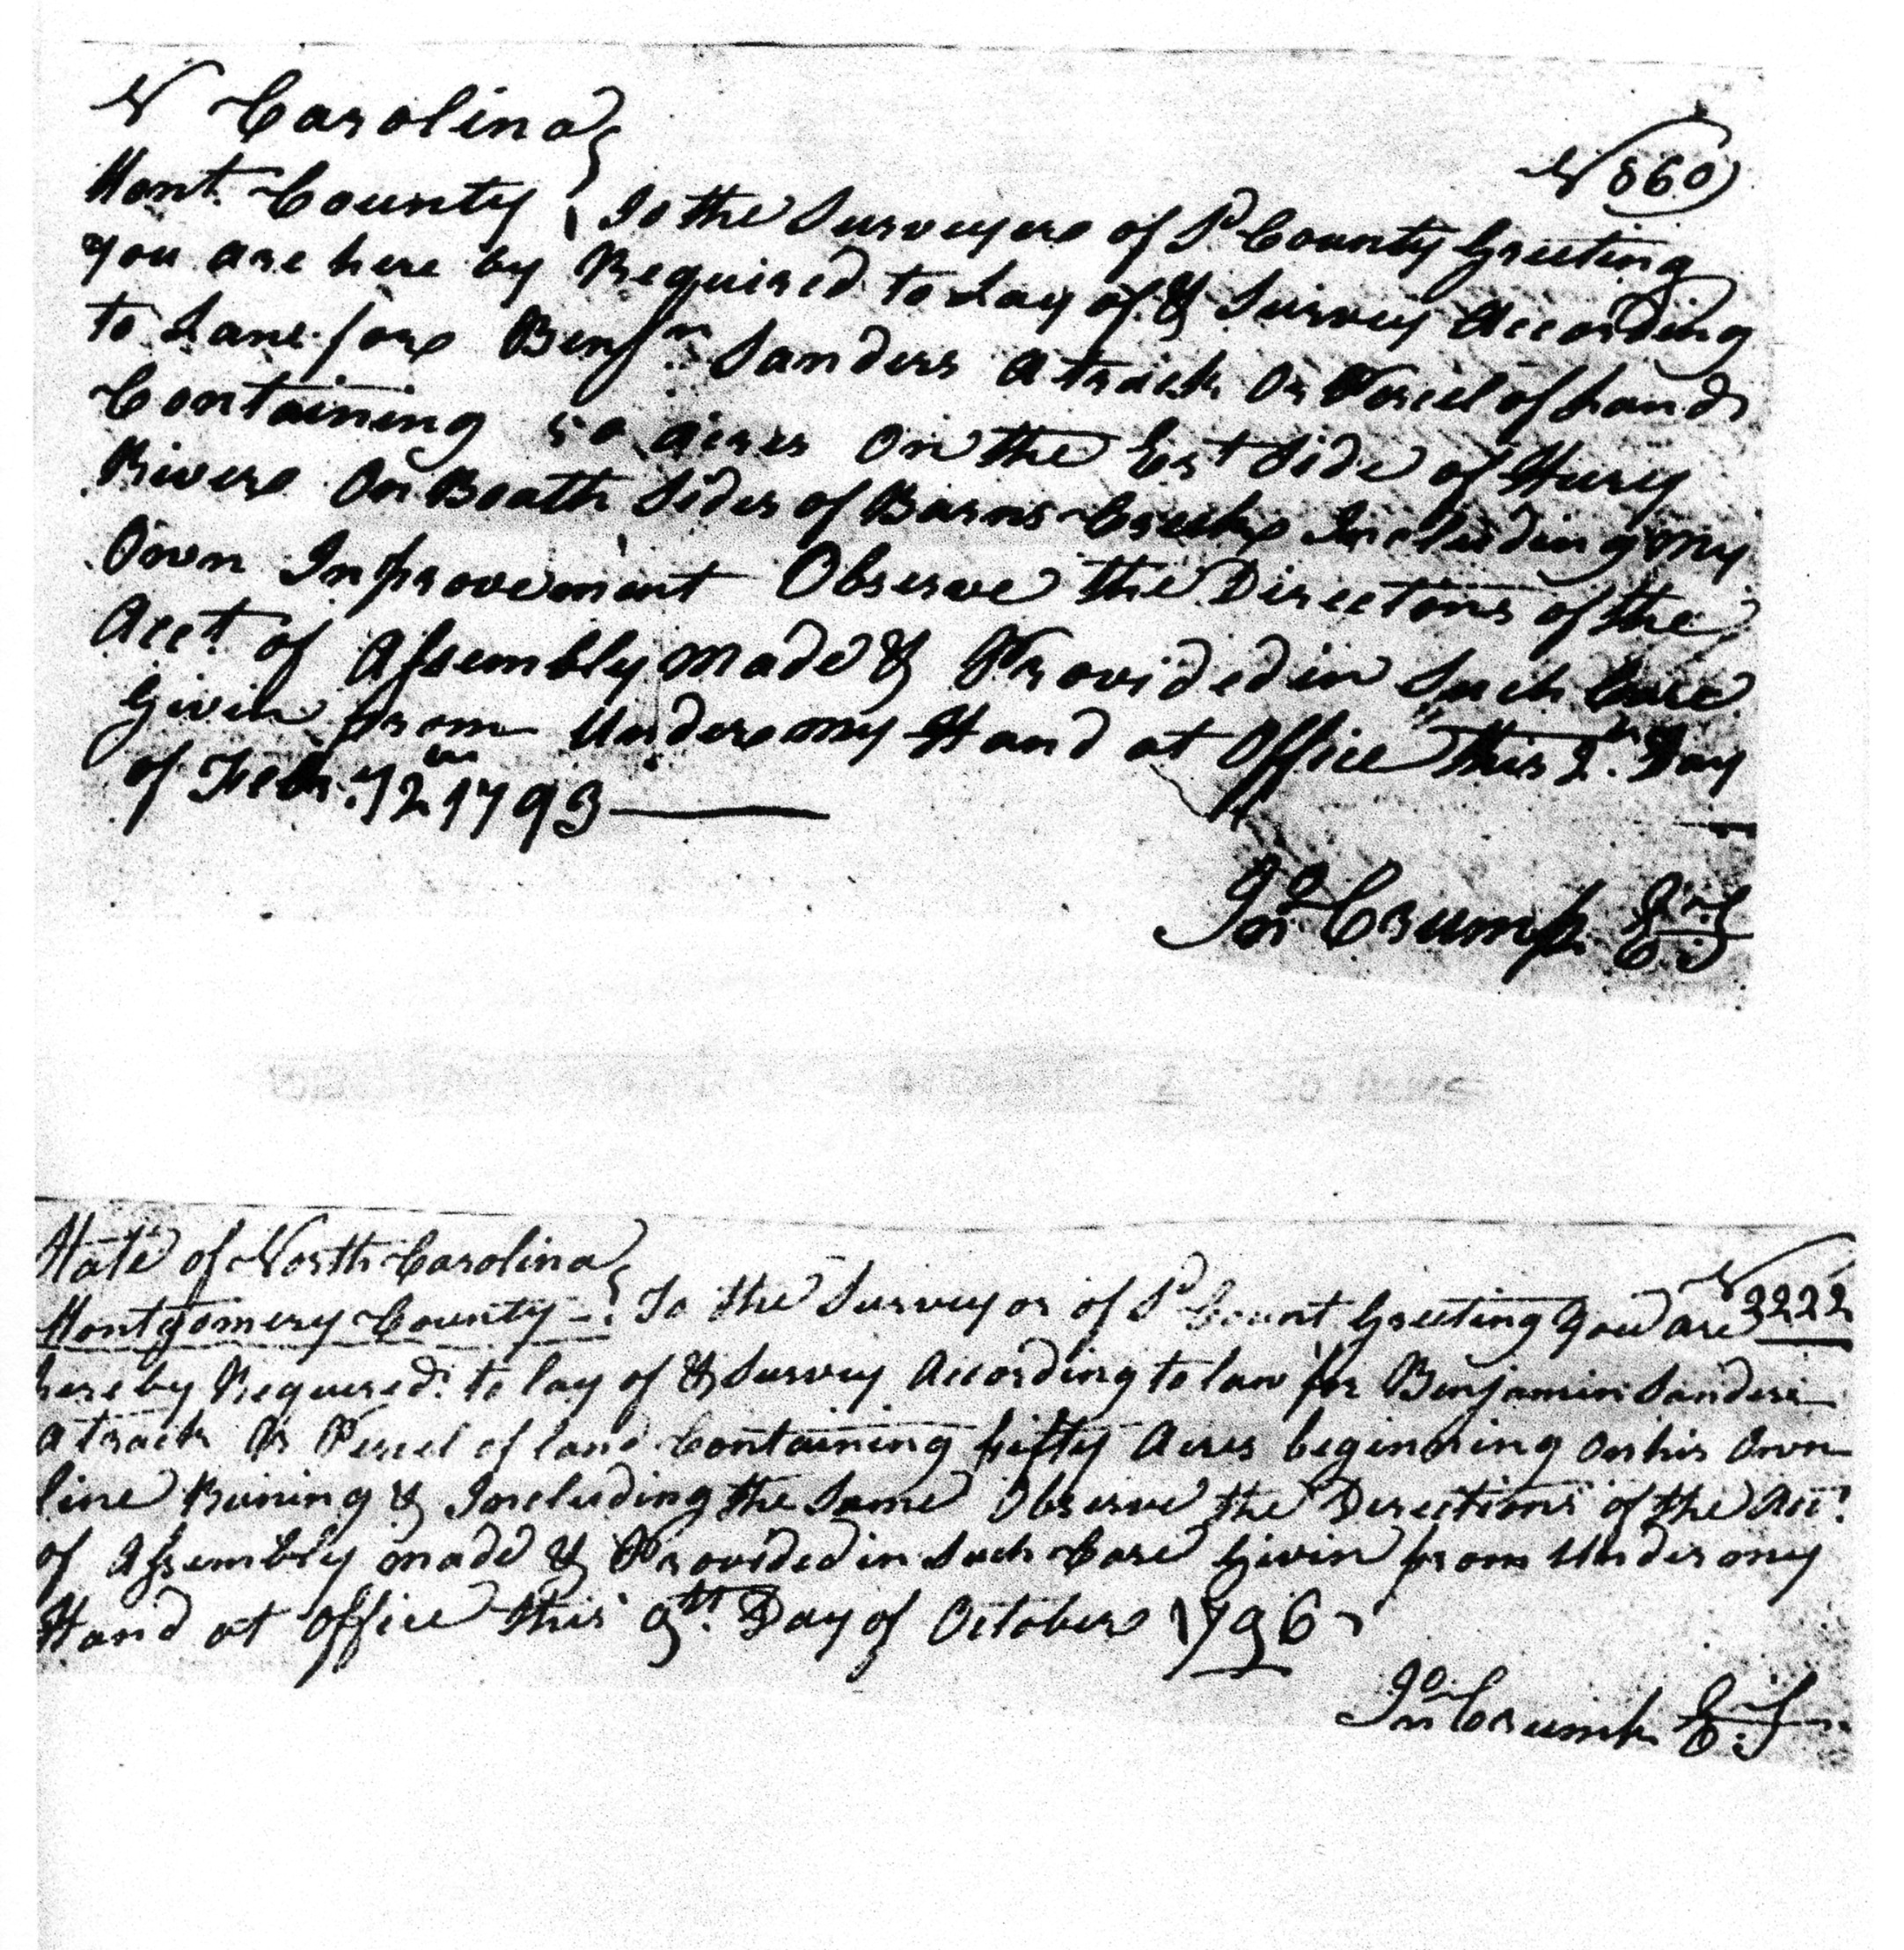 N Carolina
N 860
Mont. County } To the Surveyore of Sd County Greeting
you are here by Required to Lay of & Survey According
to Lane fore Benjn Sanders A track Or Parcel of Land
Containing 50 acres On the Est Side of Hury
Rivere On Boath Sides of Barns Creeke Including my
Own Inprovement Observe the Directons of the
Acct of Assembly made & Provided in Such Case
Givin from Undere my Hand at Office this 2n Day
of Febr.y 1793
Jno Crump E:T
State of North Carolina
N 2222
Montgomery County } To the Surveyor of Sd Count Greeting you are
hereby Requered to lay of & Survey According to law for Benjamin Sanders
A track Or Percel of land Containing fifty Acres beginning On his Own
line Runing & Including the Same Observe the Directions of the Act
of Assembly made & Provided in Such Case Givin from Under my
Hand at Office this 9th Day of October 1796
Jno Crump E:T